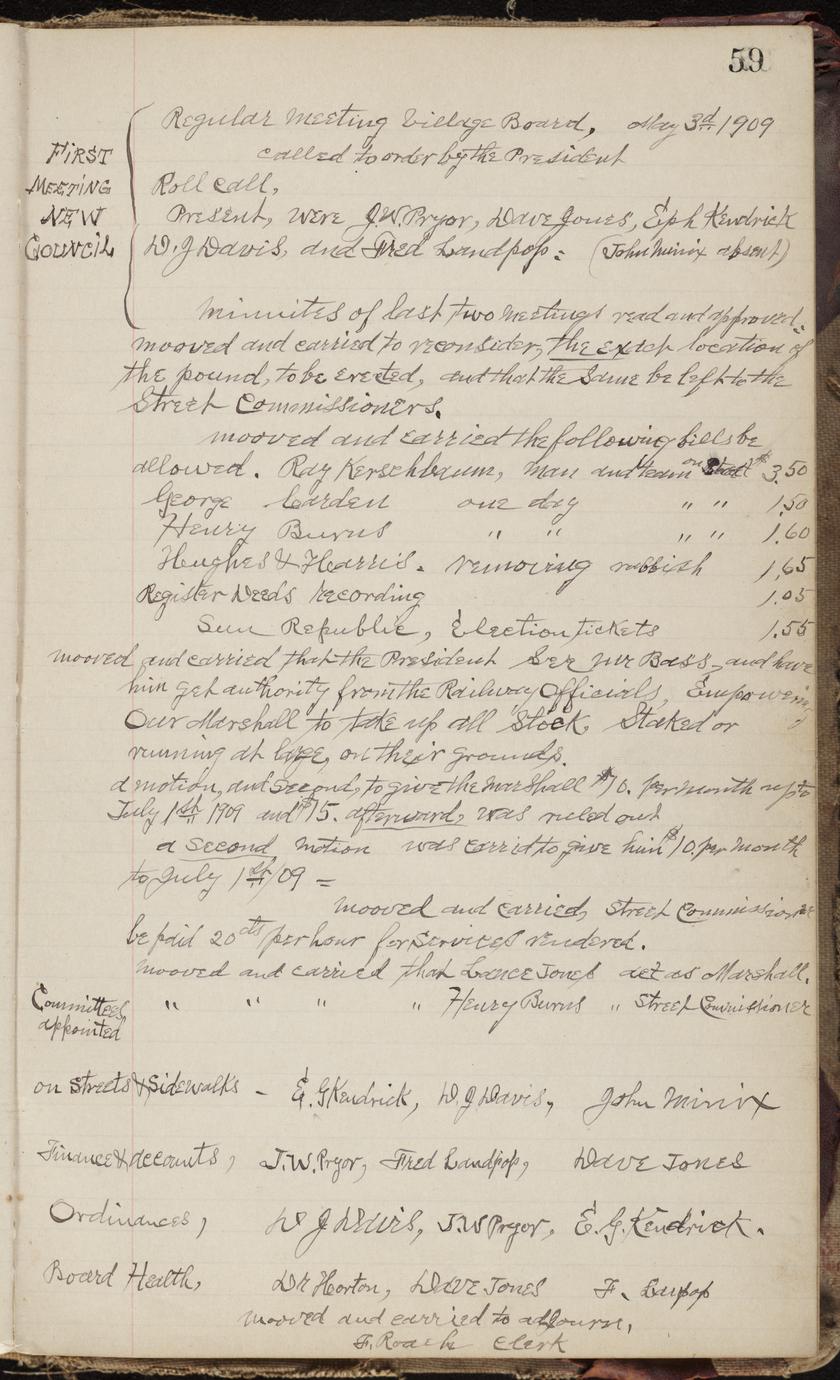 59
Regular meeting Village Board, May 3d 1909
called to order by the President
FIRST
MEETING
NEW
COUNCIL
Roll call,
Present, were J.W. Pryor, Dave Jones, Eph Kendrick
D.J Davis, and Fred Landpop: (John Minix absent)
minnites of last two meetings read and approved.
mooved and carried to reconsider, the exact location of
the pound, to be erected, and that the Same be left to the
Street Commissioners.
mooved and carried the following bills be
allowed. Ray Kerschbaum, man and team on $3.50
George Carden one day " " 1.50
Henry Burns " " " " 1.60
Hughes & Harris. remoiving rubbish 1.65
Register Deeds recording 1.05
Sun Republic, Election tickets 1.55
mooved and carried that the President See mr Bass, and have
him get authority from the Railway Officials, Empowering
Our Marshall to take up all Stock, Staked or
running at large, on their grounds.
a motion, and Second, to give the Marshall $10. per month up to
July 1st 1909 and $15. afterward, was ruled out
a Second motion was carrid to give him $10. per month
to July 1st/09 =
mooved and carried, Street Commissioner
be paid 20cts per hour for Services rendered.
mooved and carried that Lance Jones act as Marshall.
" " " " Henry Burns " Street Commissioner
Committees
appointed
on Streets & Sidewalks - E.G Kendrick, D.J Davis, John Minix
Finance & accounts, J.W. Pryor, Fred Landpop, Dave Jones
Ordinances, D J Davis, J.W Pryor, E.G. Kendrick.
Board Health, Dr Horton, Dave Jones F. Lanpop
mooved and carried to adjourn,
F. Roach Clerk